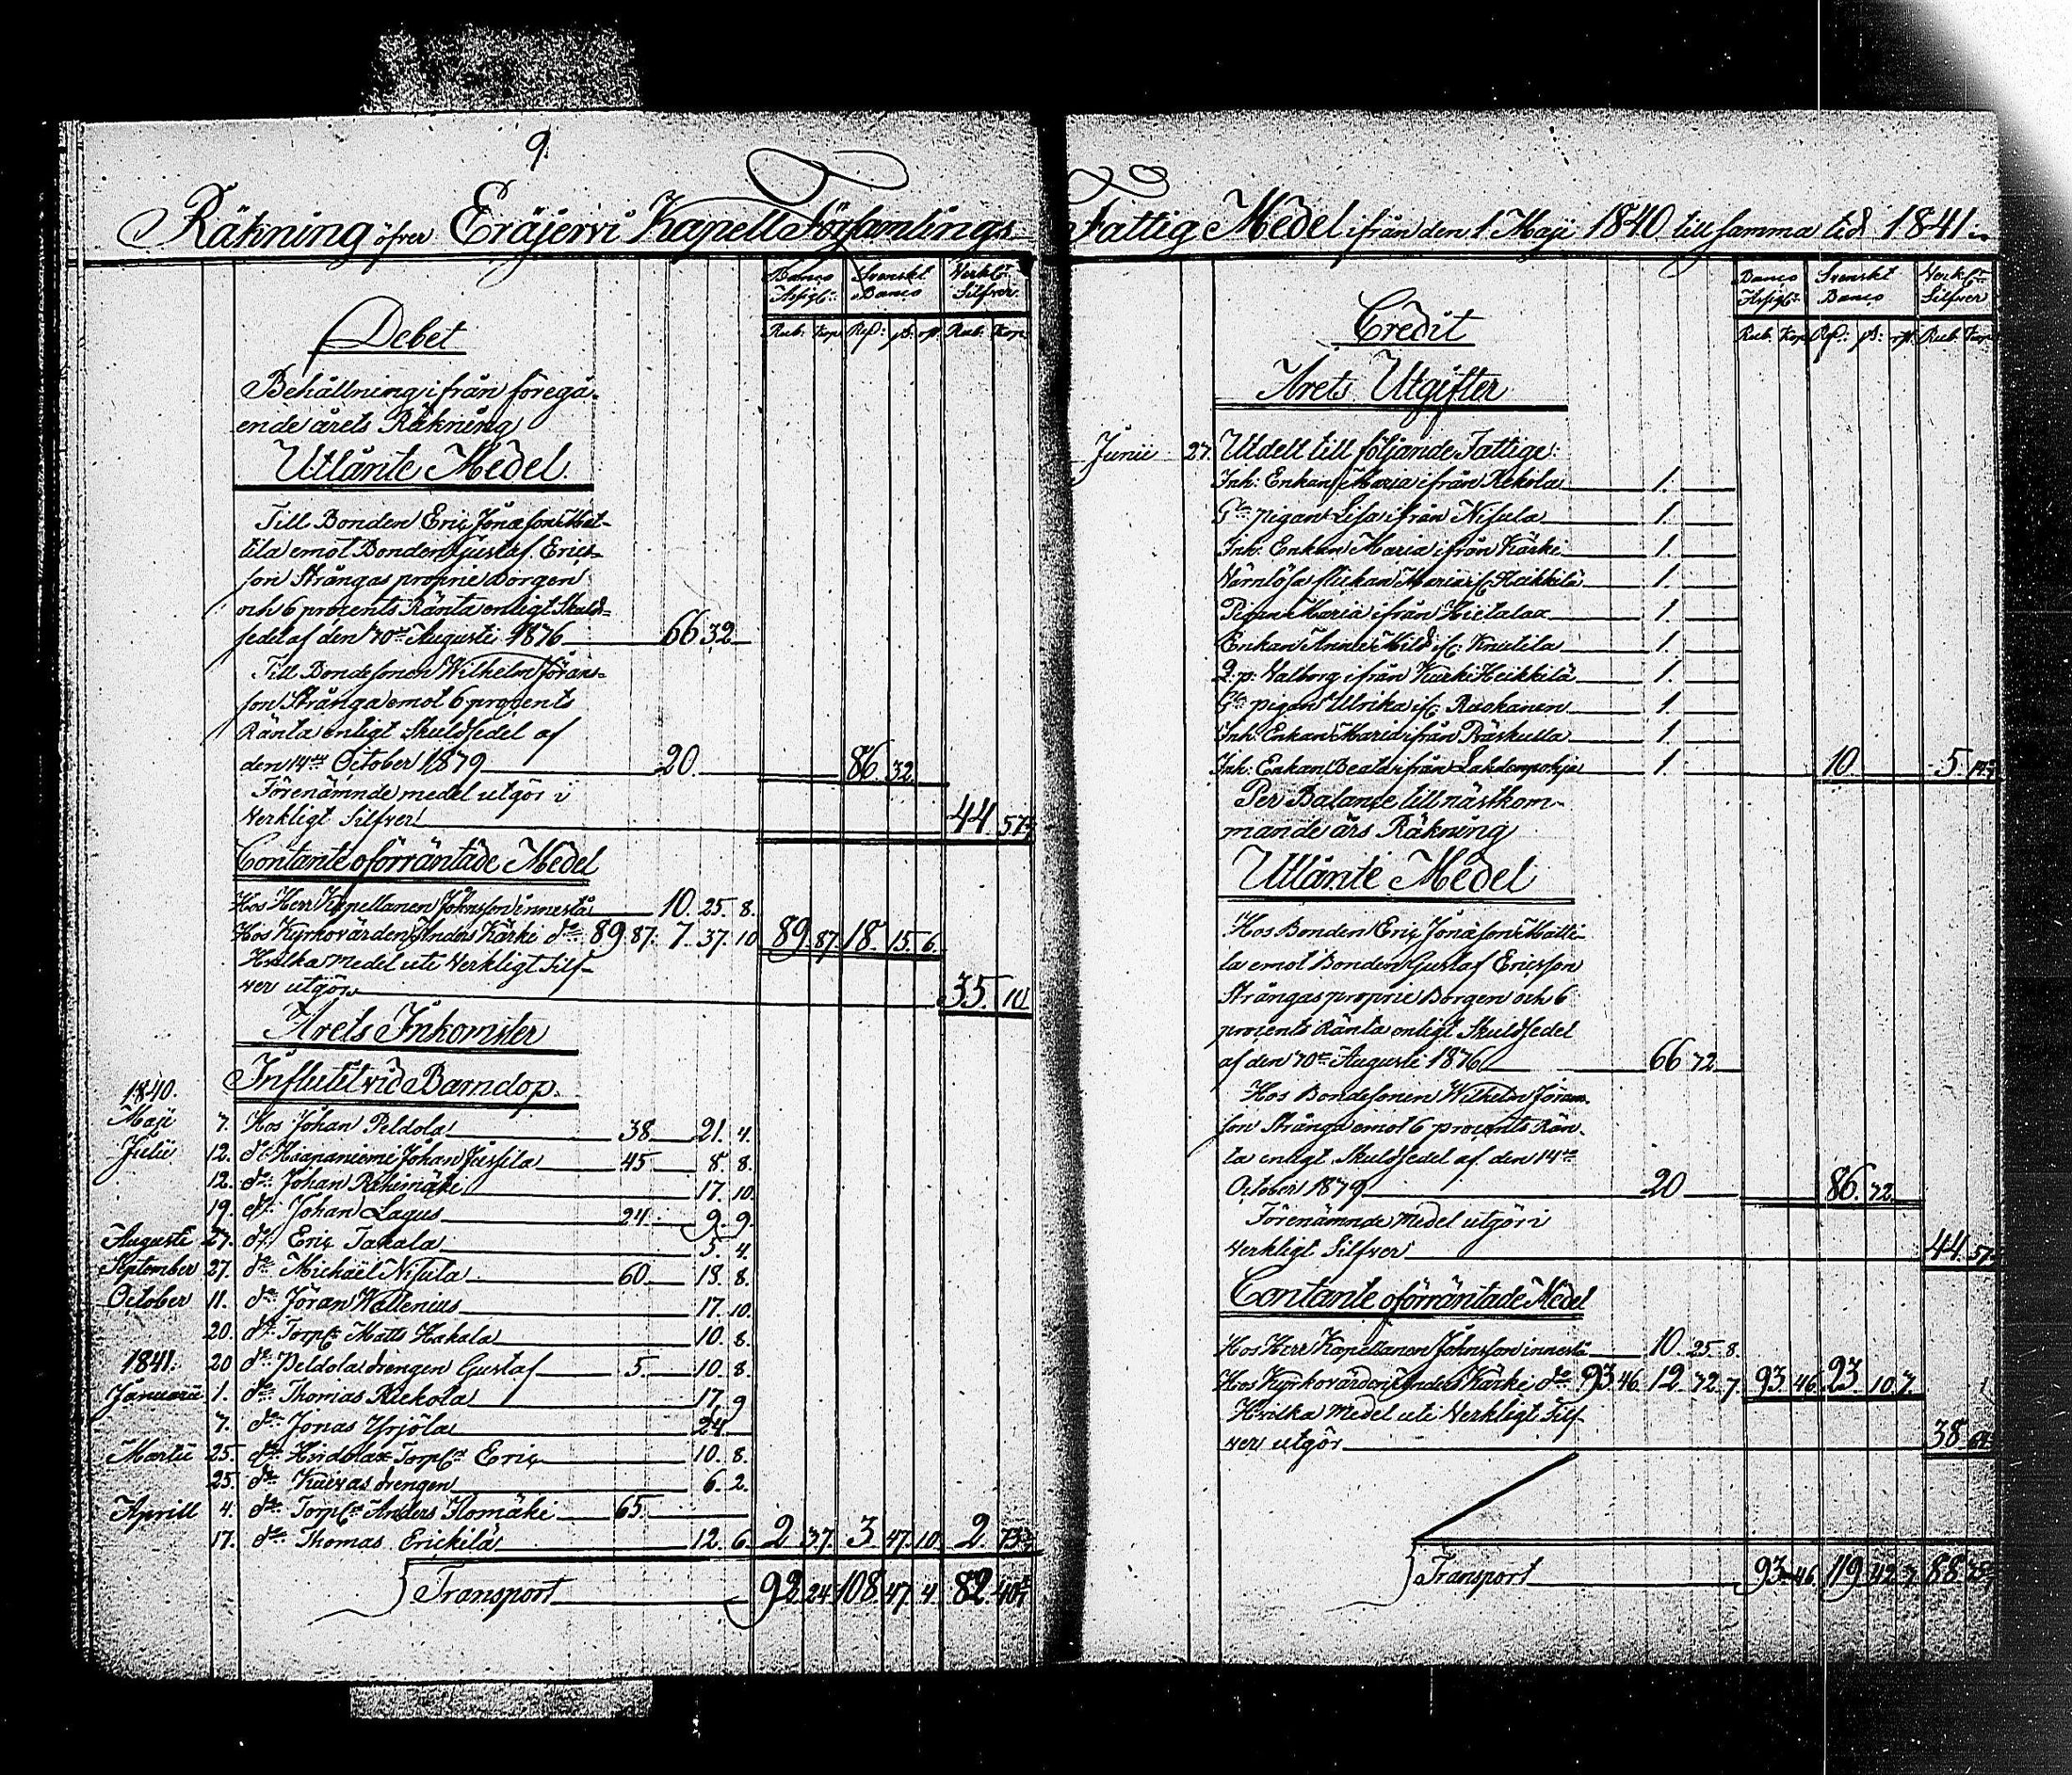 9.
Räkning öfver Eräjervi Kapell Församlings
Banco Assigt: Svenskt Banco Verkl:t Silfver
Rub. Kop Rd: ß: rst. Rub. Kop
Debet
Behållning ifrån föregå-
ende årets Räkning
Utlånte Medel
Till Bonden Eric Jönsson Mat-
tila emot Bonden Gustaf Erics-
son Strångas proprie Borgen
och 6 procents Ränta enligt Skuld-
sedel af den 10de Augusti 1836 66 32
Till Bondesonen Wilhelm Jörans-
son Strånga emot 6 procents
Ränta enligt Skuldsedel af
den 14de October 1839 20. 86. 32
Förenämnde medel utgör i
Verkligt Silfver 44. 57
Contante oförräntade Medel
Hos Herr Kapellanen Johnsson innestå 10. 25. 8.
Hos Kyrkovärden Anders Kärki do 89 87. 7. 37. 10 89. 87 18. 15. 6.
Hvilka medel uti Verkligt Silf-
ver utgör 35. 10
Årets Inkomster
Influtit vid Barndop.
1840.
Maji 7. Hos Johan Peldola 38 21. 4.
Julii 12. do Haapaniemi Johan Jussila 45 8. 8.
12. do Johan Rihimäki 17. 10.
19. do Johan Lagus 24 9. 9.
Augusti 27. do Eric Takala 5. 4.
September 27. do Michäel Nisula 60 18. 8.
October 11. do Jöran Wallenius 17. 10.
20. do Torp:n Matts Hakala 10. 8.
1841. 20 do Peldola drengen Gustaf 5. 10. 8.
Januarii 1. do Thomas Riekola 17. 9
7. do Jonas Yrjölä 24.
Martii 25. do Torp:n Eric 10. 8.
25. do drengen 6. 2.
Aprill 4. do Torp:n Anders Homäki 65.
17. do Thomas Erickilä 12. 6. 2. 37. 3. 47. 10. 2. 73
Transport 92. 24 108. 47. 4. 82. 40
Fattig Medel ifrån den 1. Maji 1840 till samma tid 1841.
Banco Assigt: Svenskt Banco Verkl:t Silfver
Rub. Kop Rd: ß: rst. Rub. Kop
Credit
Årets Utgifter
Junii 27. Utdelt till följande Fattige:
Inh: Enkan Maria ifrån Rekola 1.
G:la pigan Lisa ifrån Nisula 1.
Inh: Enkan Maria ifrån Kärki 1.
Värnlösa flickan Maria if: Heikkilä 1.
Pigan Maria ifrån Hietalax 1.
Enkan Anna Mild if: Knutila 1.
Q:p: Valborg ifrån Kurki Heikkilä 1.
G:la pigan Ulrika if: Ruokanen 1.
Inh: Enkan Maria ifrån Präskulla 1.
Inh: Enkan Beata ifrån Lahdenpohja 1. 10. 5.
Per Balance till nästkom-
mande års Räkning
Utlånte Medel
Hos Bonden Eric Jönsson Matti-
la emot Bonden Gustaf Ericsson
Strångas proprie Borgen och 6
procents Ränta enligt Skuldsedel
af den 10de Augusti 1836 66 32
Hos Bondesonen Wilhelm Jörans-
son Strånga emot 6 procents Rän-
ta enligt Skuldsedel af den 14de
October 1839 20 86. 32.
Förenämnde medel utgör i
Verkligt Silfver 44. 57
Contante oförräntade Medel
Hos Herr Kapellanen Johnsson innestå 10. 25. 8.
Hos Kyrkovärden Anders Kärki do 93. 46. 12. 32. 7. 93. 46. 23. 10. 7.
Hvilka medel uti Verkligt Silf-
ver utgör 38.
Transport 93. 46. 119 42. 7. 88.